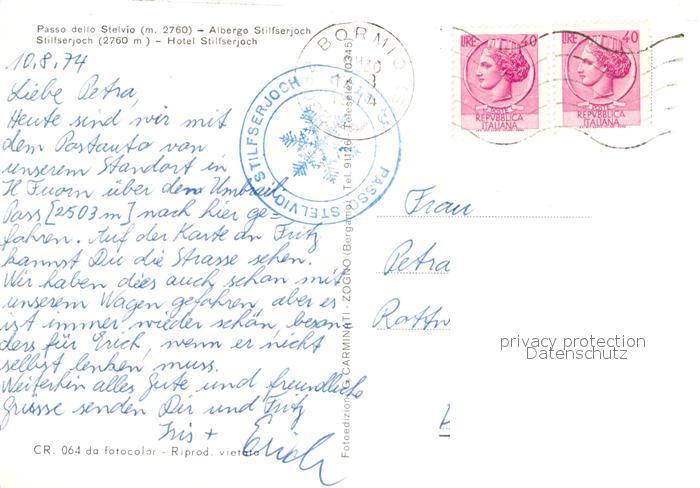 Passo dello Stelvio (m. 2760) – Albergo Stilfserjoch
Stilfserjoch (2760 m) – Hotel Stilfserjoch
10.8.74
Liebe Petra,
Heute sind wir mit
dem Postauto von
unserem Standort in
Il Fuorn über dem Umbrail
Pass [2503 m] nach hier ge-
fahren. Auf der Karte an Fritz
kannst Du die Strasse sehen.
Wir haben dies auch schon mit
unserem Wagen gefahren, aber es
ist immer wieder schön, beson
ders für Erich, wenn er nicht
selbst lenken muss.
Weiterhin alles Gute und freundliche
Grüsse senden Dir und Fritz
Iris + Erich
CR. 064 da fotocolor - Riprod. vietata
STILFSERJOCH
PASSO STELVIO
BORMIO
Fotoedizioni G. CARMINATI - ZOGNO (Bergamo) Tel. 91126 Teleselez. (0345)
LIRE 40
POSTE
REPVBBLICA
ITALIANA
LIRE 40
POSTE
REPVBBLICA
ITALIANA
Frau
Petra
privacy protection
Datenschutz